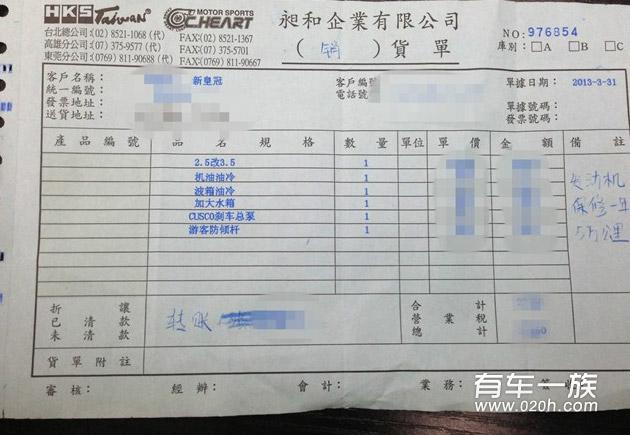 HKS Taiwan MOTOR SPORTS C.HEART 昶和企業有限公司
台北總公司:(02) 8521-1068 (代) FAX:(02) 8521-1367
高雄分公司:(07) 375-9577 (代) FAX:(07) 375-5701
東莞分公司:(0769) 811-90688 (代) FAX:(0769) 811-90667
(銷) 貨單
NO:976854
庫別:□A □B □C
客戶名稱: 新皇冠 客戶編號 單據日期:2013-3-31
統一編號: 電話號 單據號碼:
發票地址: 發票號碼:
送貨地址:
產品編號 品名規格 數量 單位 單價 金額 備註
2.5改3.5 1
机油油冷 1
波箱油冷 1
加大水箱 1
CUSCO刹车总泵 1
游客防倾杆 1
发动机
保修一年
5万公里
折讓 合計
已清款 转账 營業稅
未清款 總計
貨單附註
審核: 經辦: 會計: 業務: 簽收
有车一族
www.020h.com